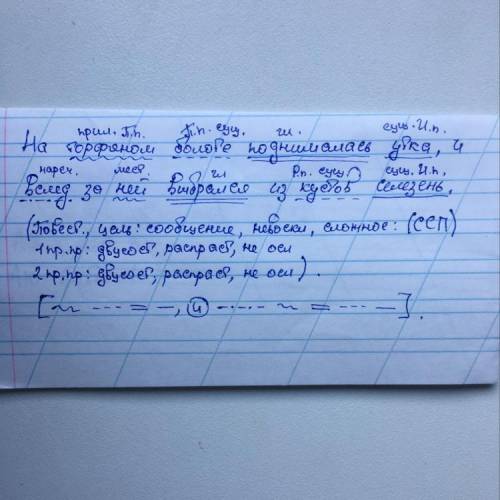 прил. П.п. П.п. сущ. гл. сущ. И.п.
На торфяном болоте поднималась утка, и
нареч. мест. гл Р.п. сущ. сущ. И.п.
Вслед за ней выбрался из кустов селезень.
(Повест., цель: сообщение, невоскл, сложное: (ССП)
1 пр.пр: двусост, распраст, не осл
2 пр.пр: двусост, распраст, не осл).
[ , и ].